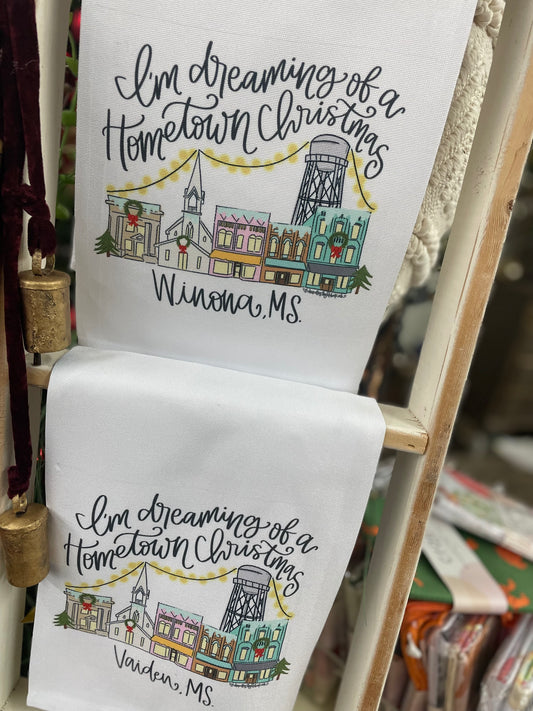 I'm dreaming of a
Hometown Christmas
Winona, MS.
I'm dreaming of a
Hometown Christmas
Vaiden, MS.